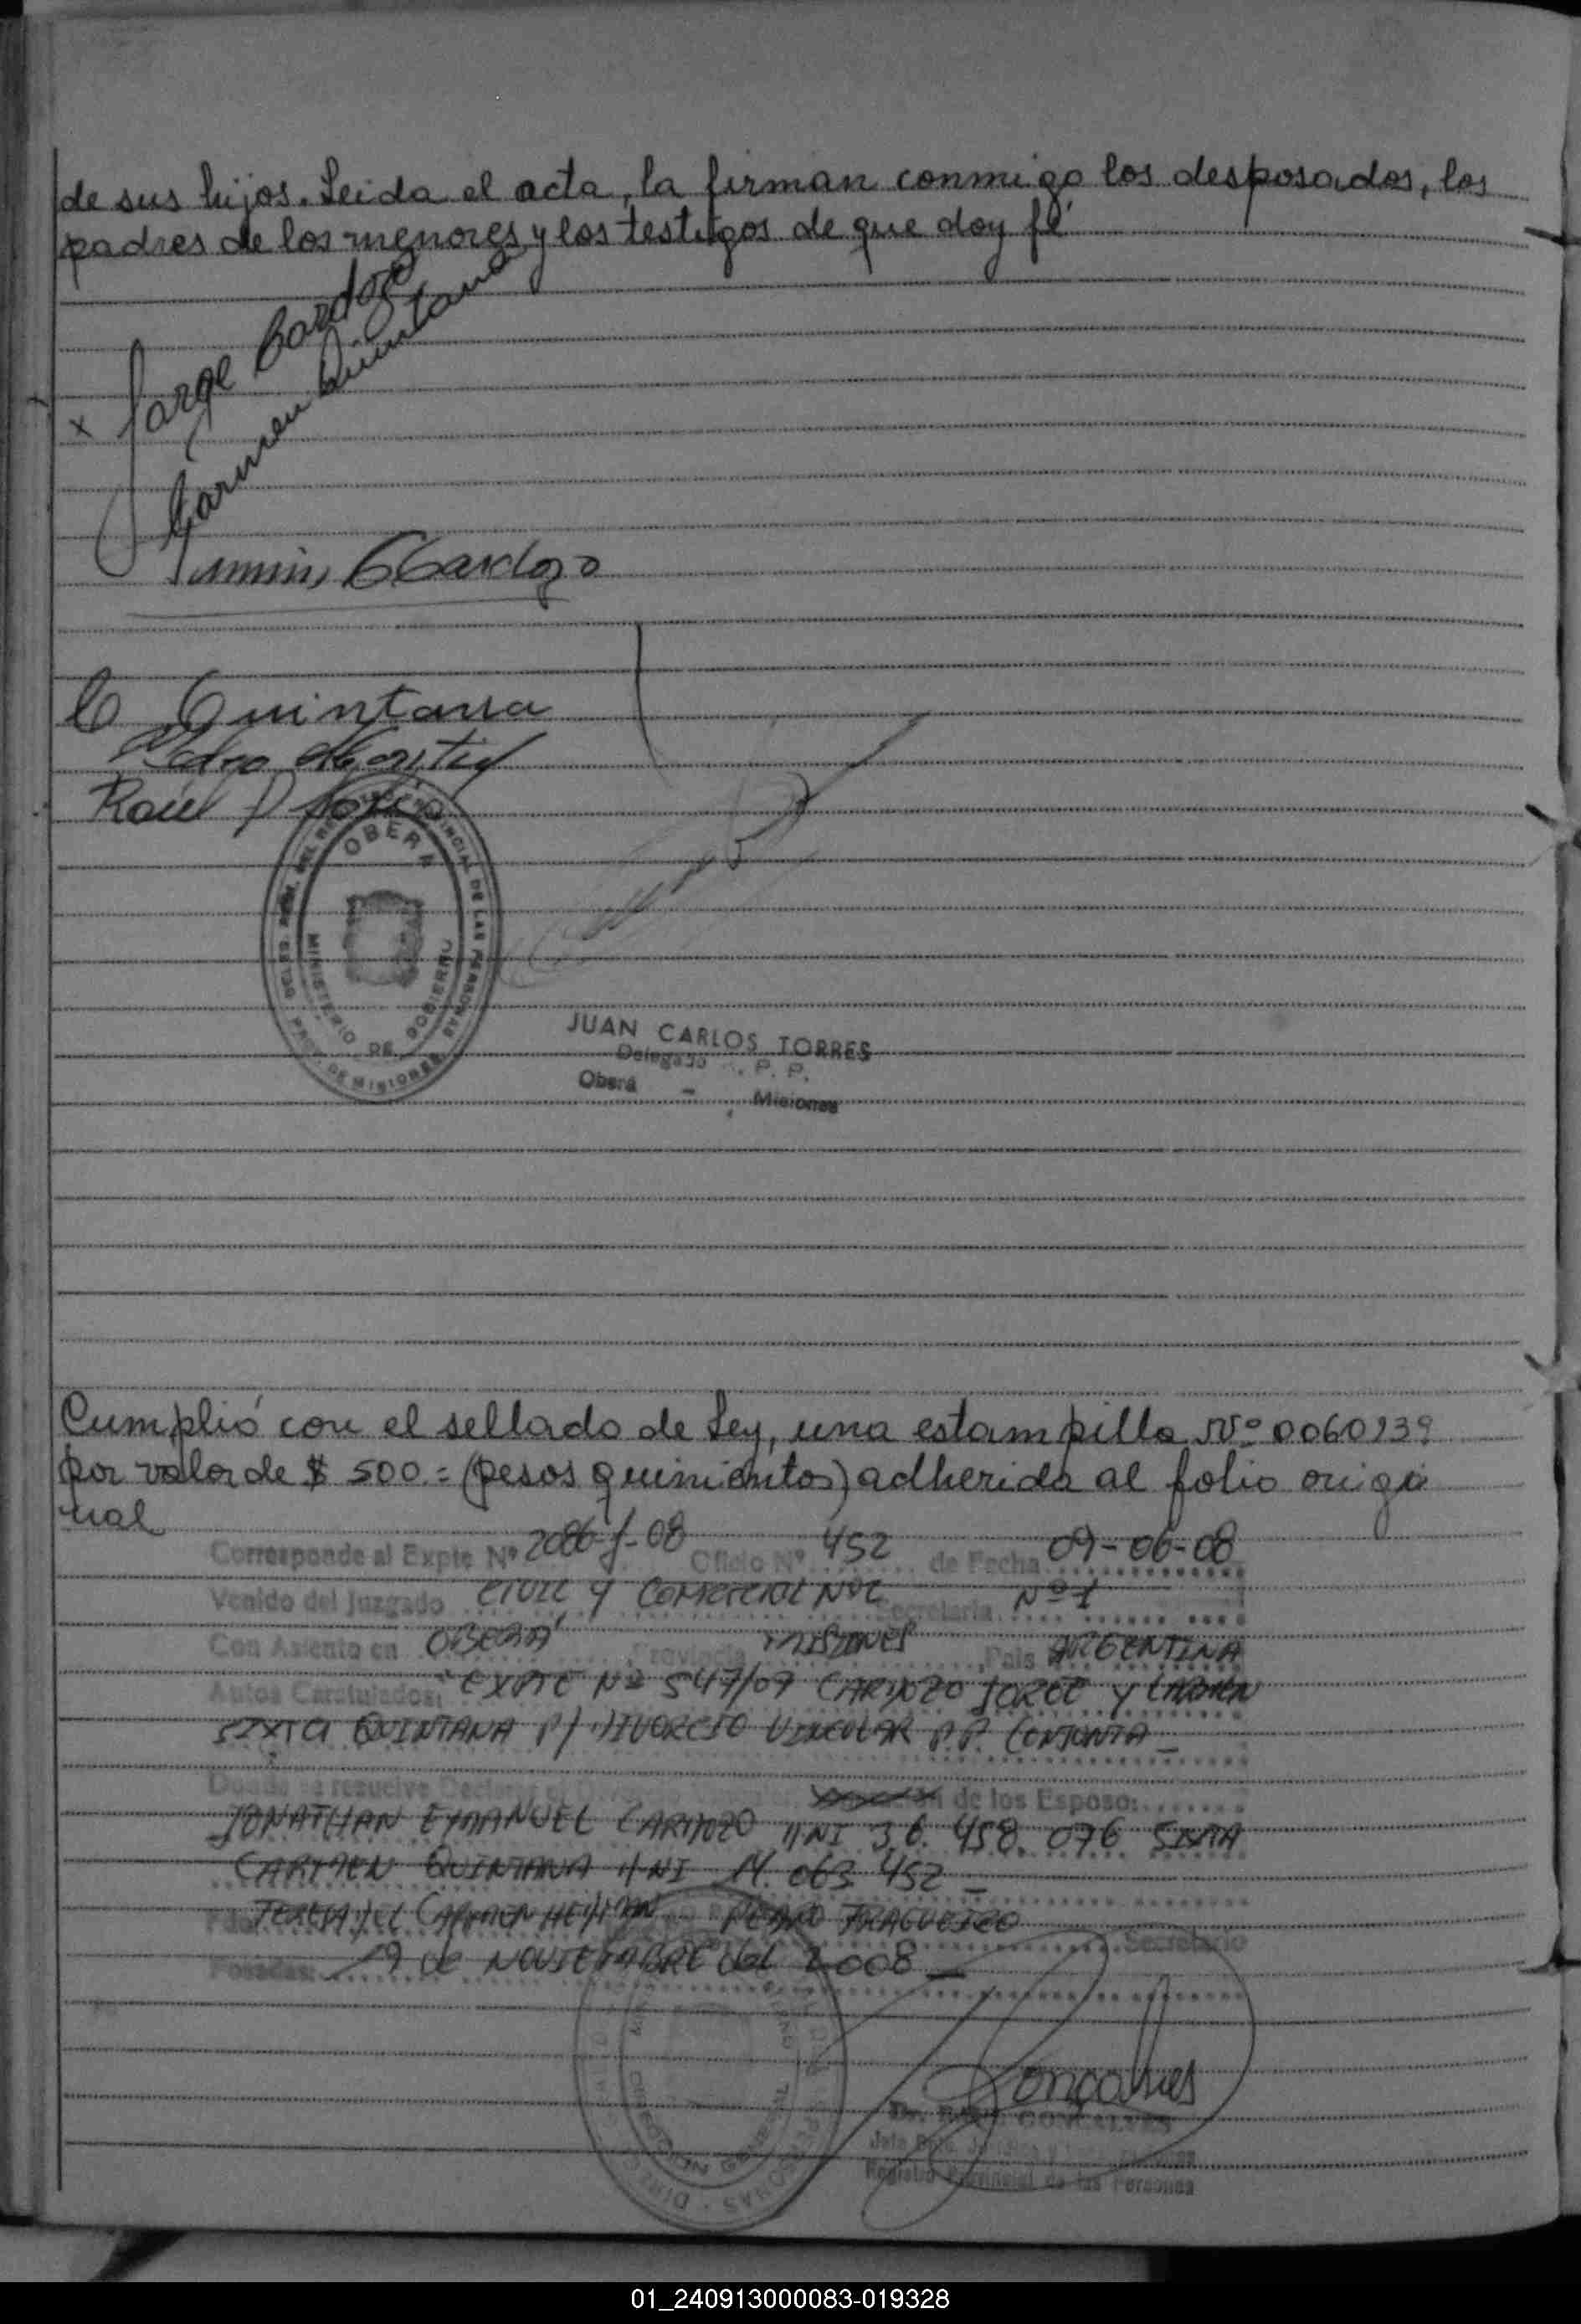 de sus hijos. Leida el acta, la firman conmigo los desposados, los
padres de los menores y los testigos de que doy fé
x Jorge Cardozo
Carmen Quintana
Cardozo
C Quintana
Pedro
Raúl
OBERA
MINISTERIO DE GOBIERNO
PROV. DE MISIONES
JUAN CARLOS TORRES
Delegado R. P. P.
Oberá - Misiones
Cumplió con el sellado de Ley, una estampilla Nº 0060939
por valor de $ 500.= (pesos quinientos) adherida al folio origi
nal
Corresponde al Expte Nº 2086-J-08 Oficio Nº 452 de Fecha 09-06-08
Venido del Juzgado CIVIL Y COMERCIAL Nº 2 Secretaria Nº 1
Con Asiento en OBERÁ, Provincia MISIONES, Pais ARGENTINA
Autos Caratulados: "EXPTE Nº 547/07 CARDOZO JORGE Y CARMEN
SIXTA QUINTANA P/ DIVORCIO VINCULAR P.P. CONJUNTA
Donde se resuelve Declarar el Divorcio de los Esposo:
JONATHAN EMANUEL CARDOZO DNI 36.458.076 SIXTA
CARMEN QUINTANA DNI 14.063.452 —
TERESA DEL CARMEN PEDRO FRAGUEIRO Secretario
Posadas: 19 de NOVIEMBRE del 2008 —
Goncalves
Dr. GONCALVES
Registro Provincial de las Personas
01_240913000083-019328